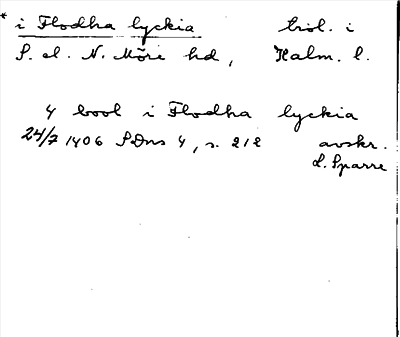 * i Flodha lyckia bol. i
S. el. N. Möre hd, Kalm. l.
4 bool i Flodha lyckia
24/7 1406 SDns 4, s. 212 avskr.
L. Sparre